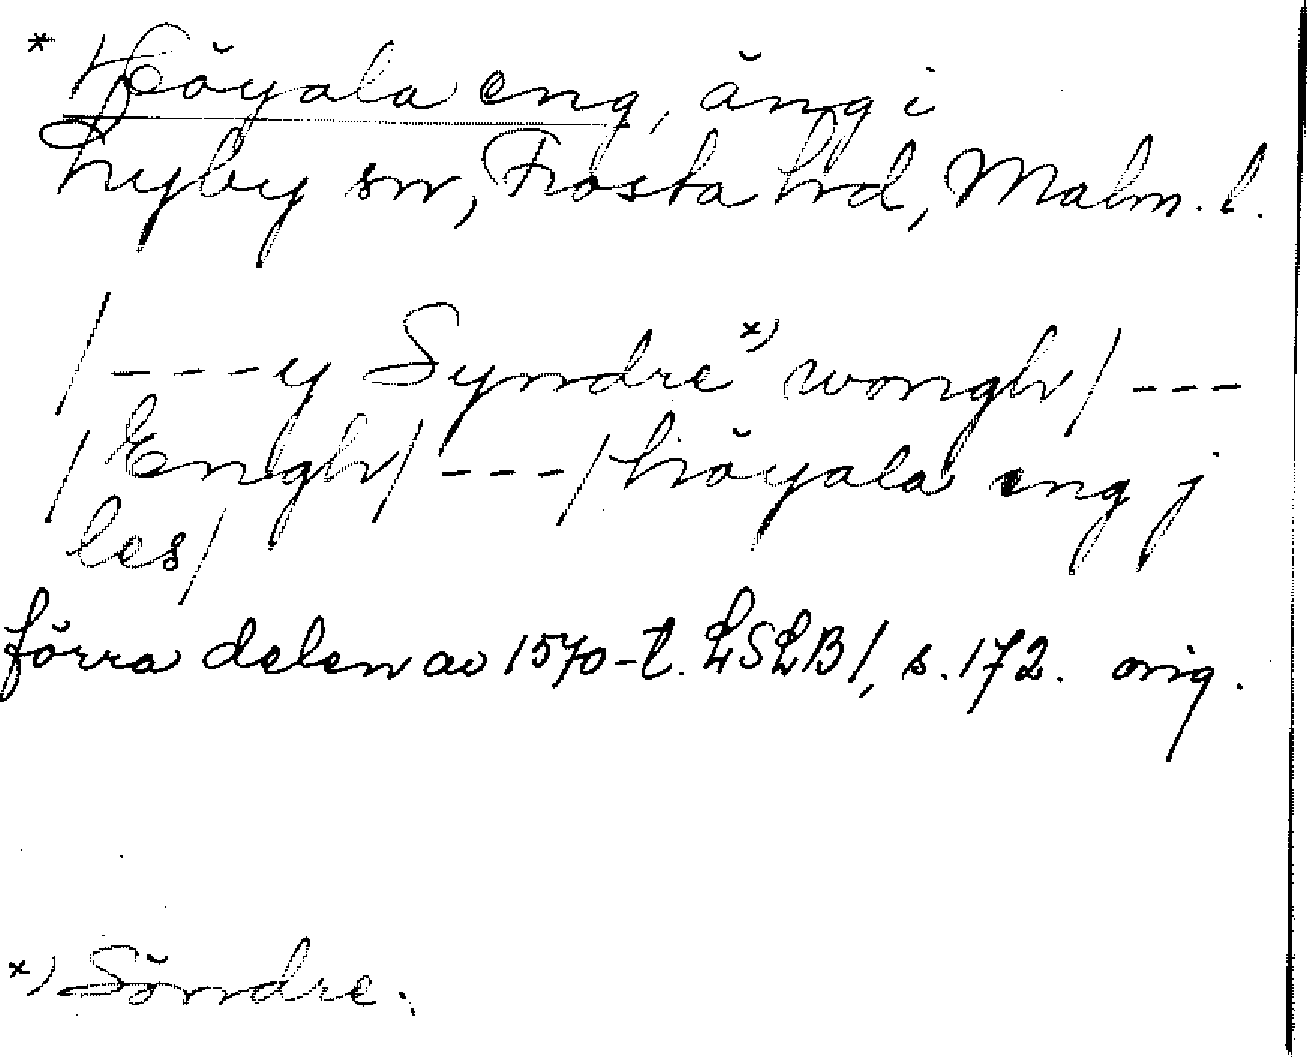 * Höyala eng, äng i
Lyby sn, Frosta hd, Malm. l.
/---y Syndre x) wongh/---
/Engh/---/höyala eng j
les/
förra delen av 1570-t. LSLB1, s. 172. orig.
x) Söndre.